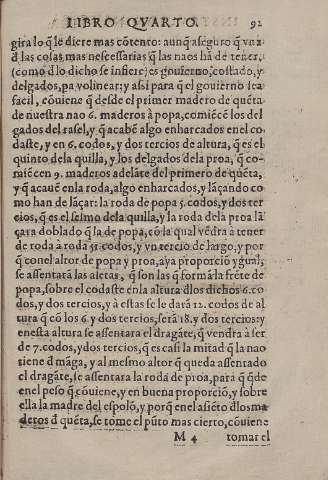 LIBRO QVARTO. 92
gira lo q̃ le diere mas cõtento: aunq̃ aseguro q̃ va a
d̃ las cosas mas nescessarias q̃ las naos hã de tener,
(como d̃ lo dicho se infiere) es gouierno, costado, y
delgados, pa volinear: y asi para q̃ el gouierno sea
facil, cõuiene q̃ desde el primer madero de quẽta
de nuestra nao 6. maderos à popa, comiẽcẽ los del
gados del rasel, y q̃ acabẽ algo enharcados en el co
daste, y en 6. codos, y dos tercios de altura, q̃ es el
quinto de la quilla, y los delgados de la proa, q̃ co-
miẽcen 9. maderos adelãte del primero de quẽta,
y q̃ acauẽ en la roda, algo enharcados, y lãçando co
mo han de lãçar: la roda de popa 5. codos, y dos ter
cios, q̃ es el selmo de la quilla, y la roda de la proa lã
çara doblado q̃ la de popa, cõ la qual vẽdra à tener
de roda à roda 51. codos, y vn tercio de largo, y por
q̃ con el altor de popa y proa, aya proporciõ ygual;
se assentarã las aletas, q̃ son las q̃ formã la frẽte de
popa, sobre el codaste en la altura d̃ los dichos 6. co
dos, y dos tercios, y à estas se le darã 12. codos de al
tura q̃ cõ los 6. y dos tercios, serã 18. y dos tercios: y
en esta altura se assentara el dragãte, q̃ vendra à ser
de 7. codos, y dos tercios, q̃ es casi la mitad q̃ la nao
tiene d̃ mãga, y al mesmo altor q̃ queda assentado
el dragãte, se assentara la roda de proa, para q̃ q̃de
en el peso q̃ cõuiene, y en buena proporciõ, y sobre
ella la madre del espolõ, y porq̃ en el asiẽto d̃ los ma
deros d̃ quẽta, se tome el pũto mas cierto, cõuiene
M 4 tomar el